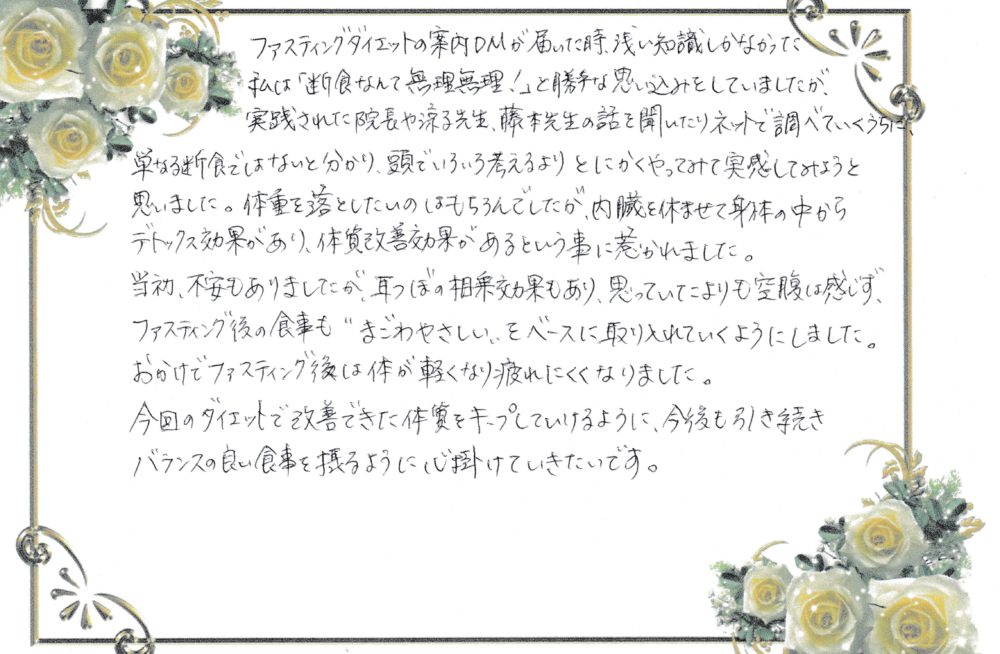 ファスティングダイエットの案内DMが届いた時、浅い知識しかなかった
私は「断食なんて無理無理！」と勝手な思い込みをしていましたが、
実践された院長や涼子先生、藤本先生の話を聞いたりネットで調べていくうちに、
単なる断食ではないと分かり、頭でいろいろ考えるよりとにかくやってみて実感してみようと
思いました。体重を落としたいのはもちろんでしたが、内臓を休ませて身体の中から
デトックス効果があり、体質改善効果があるという事に惹かれました。
当初、不安もありましたが、耳つぼの相乗効果もあり、思っていたよりも空腹は感じず、
ファスティング後の食事も〝まごわやさしい〟をベースに取り入れていくようにしました。
おかげでファスティング後は体が軽くなり疲れにくくなりました。
今回のダイエットで改善できた体質をキープしていけるように、今後も引き続き
バランスの良い食事を摂るように心掛けていきたいです。